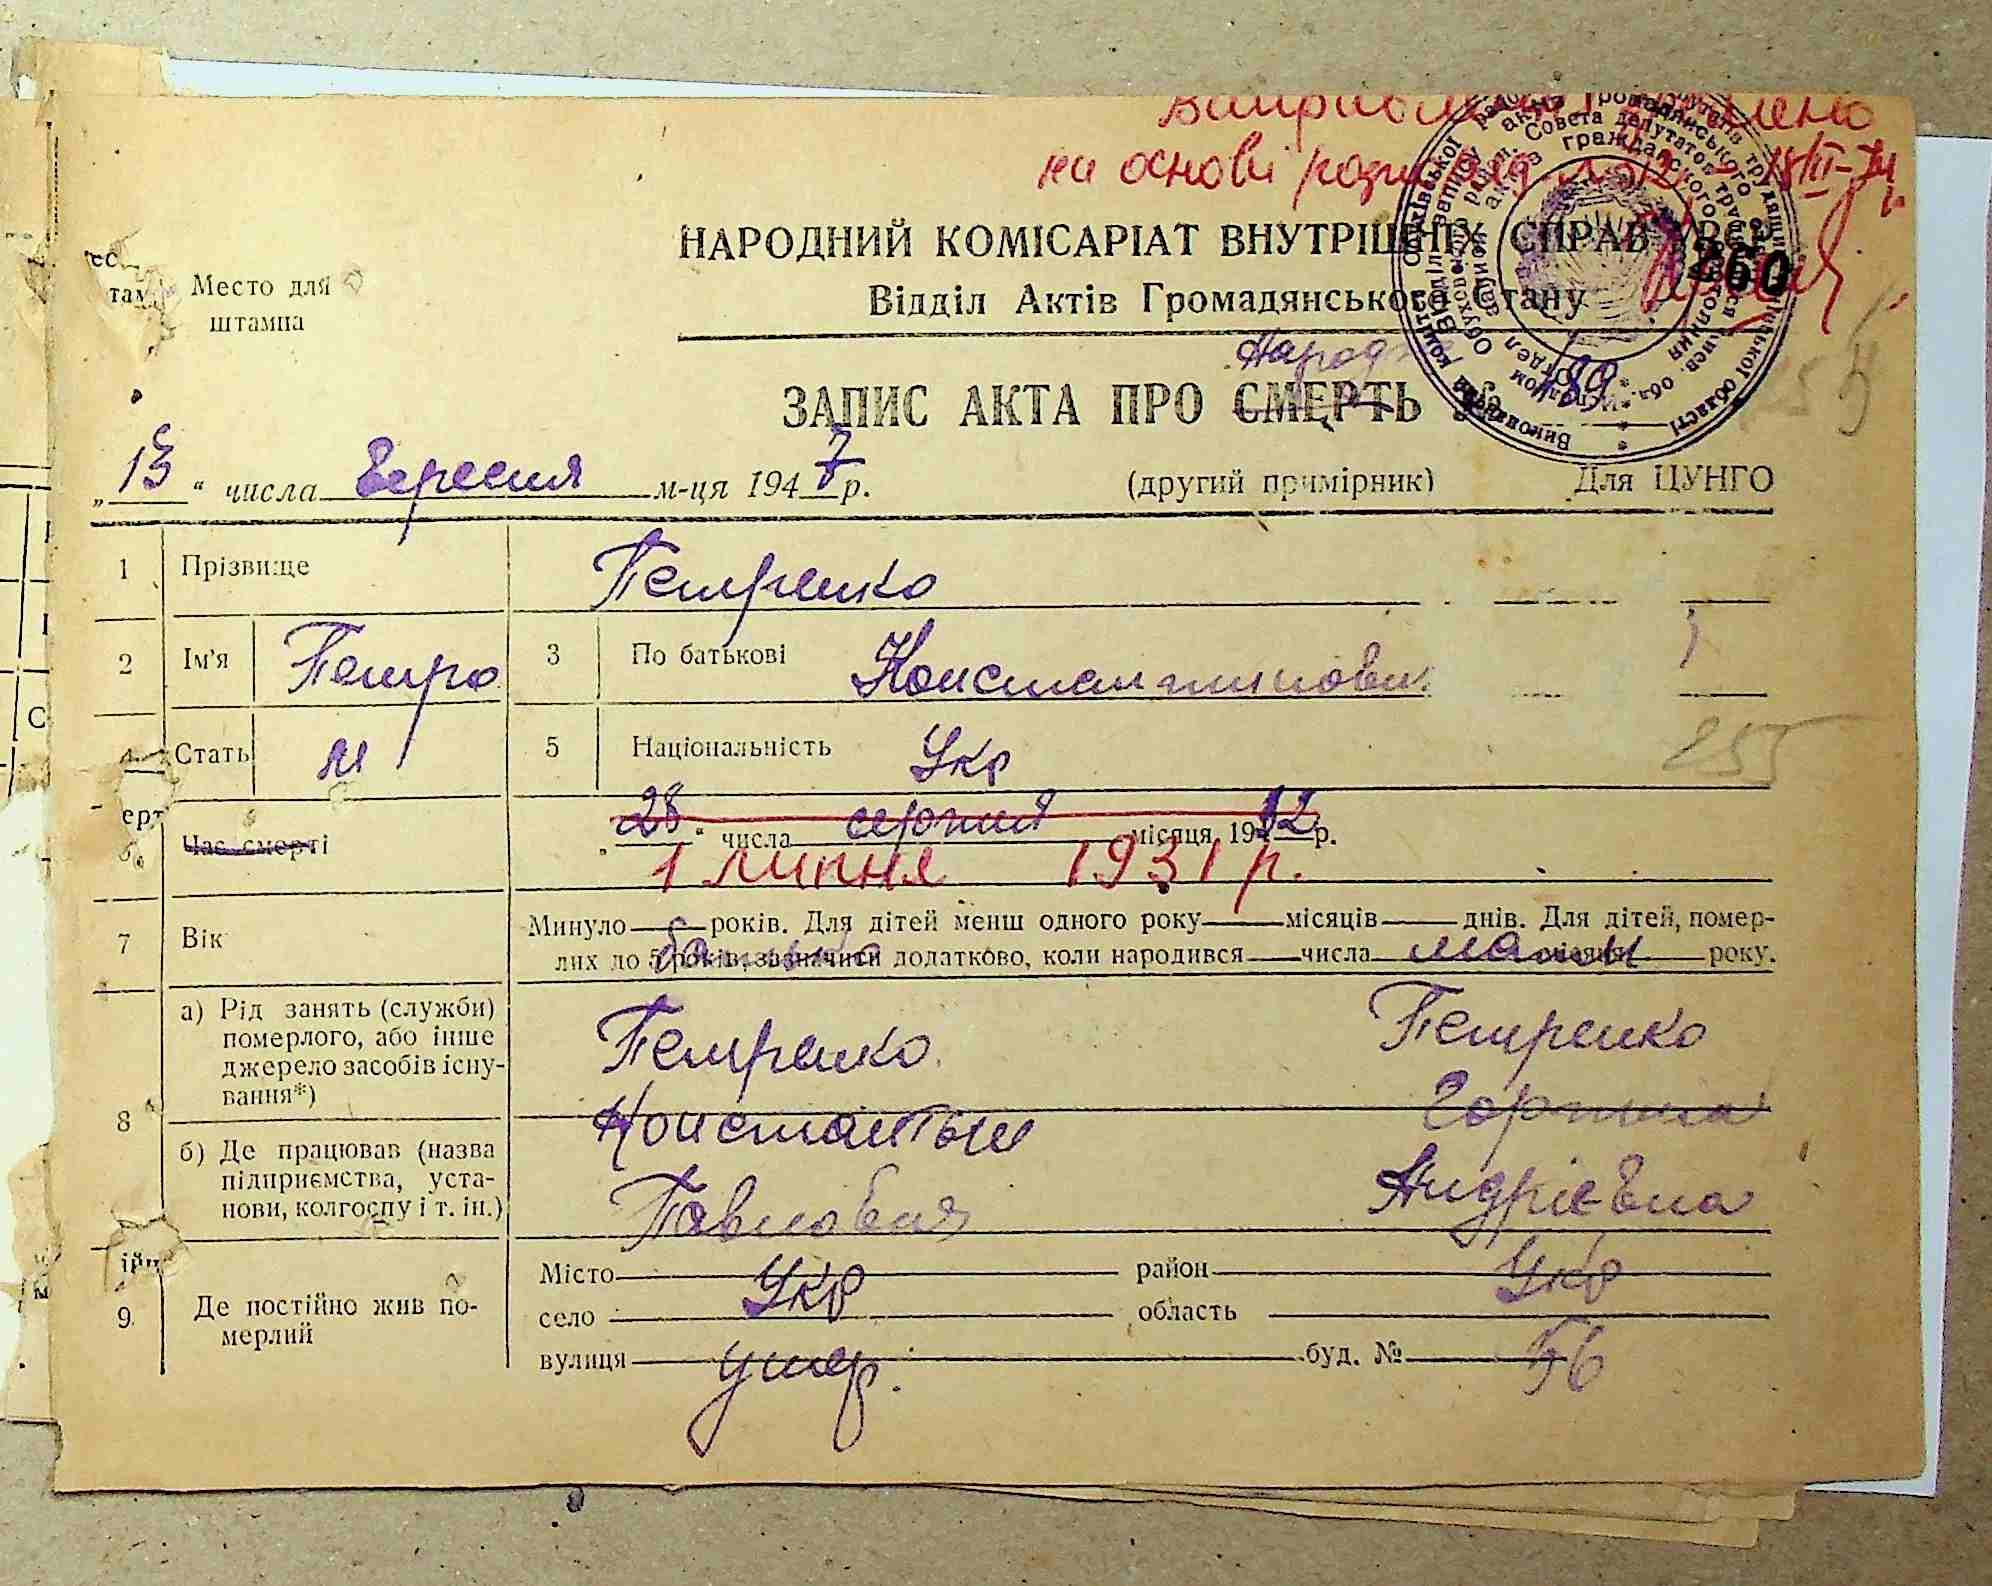 на основі 18/III-74
НАРОДНИЙ КОМІСАРІАТ ВНУТРІШНІХ СПРАВ УРСР
260
Место для
штампа
Відділ Актів Громадянського Стану
Народж
ЗАПИС АКТА ПРО СМЕРТЬ № 189
„13“ числа Вересня м-ця 1947 р. (другий примірник) Для ЦУНГО
1 Прізвище Петренко
2 Ім'я Петро 3 По батькові Константинович
4 Стать м 5 Національність Укр
255
Час смерті „28“ числа серпня місяця 1912 р.
1 липня 1931 р.
7 Вік Минуло років. Для дітей менш одного року місяців днів. Для дітей, помер-
лих до 5 років, зазначити додатково, коли народився числа місяця року.
батько мати
8 а) Рід занять (служби)
померлого, або інше
джерело засобів існу-
вання*)
Петренко Петренко
Константин Горпина
б) Де працював (назва
підприємства, уста-
нови, колгоспу і т. ін.)
Павлович Андріевна
9 Де постійно жив по-
мерлий
Місто район
Укр Укр
село область
вулиця буд. №
умер. 56